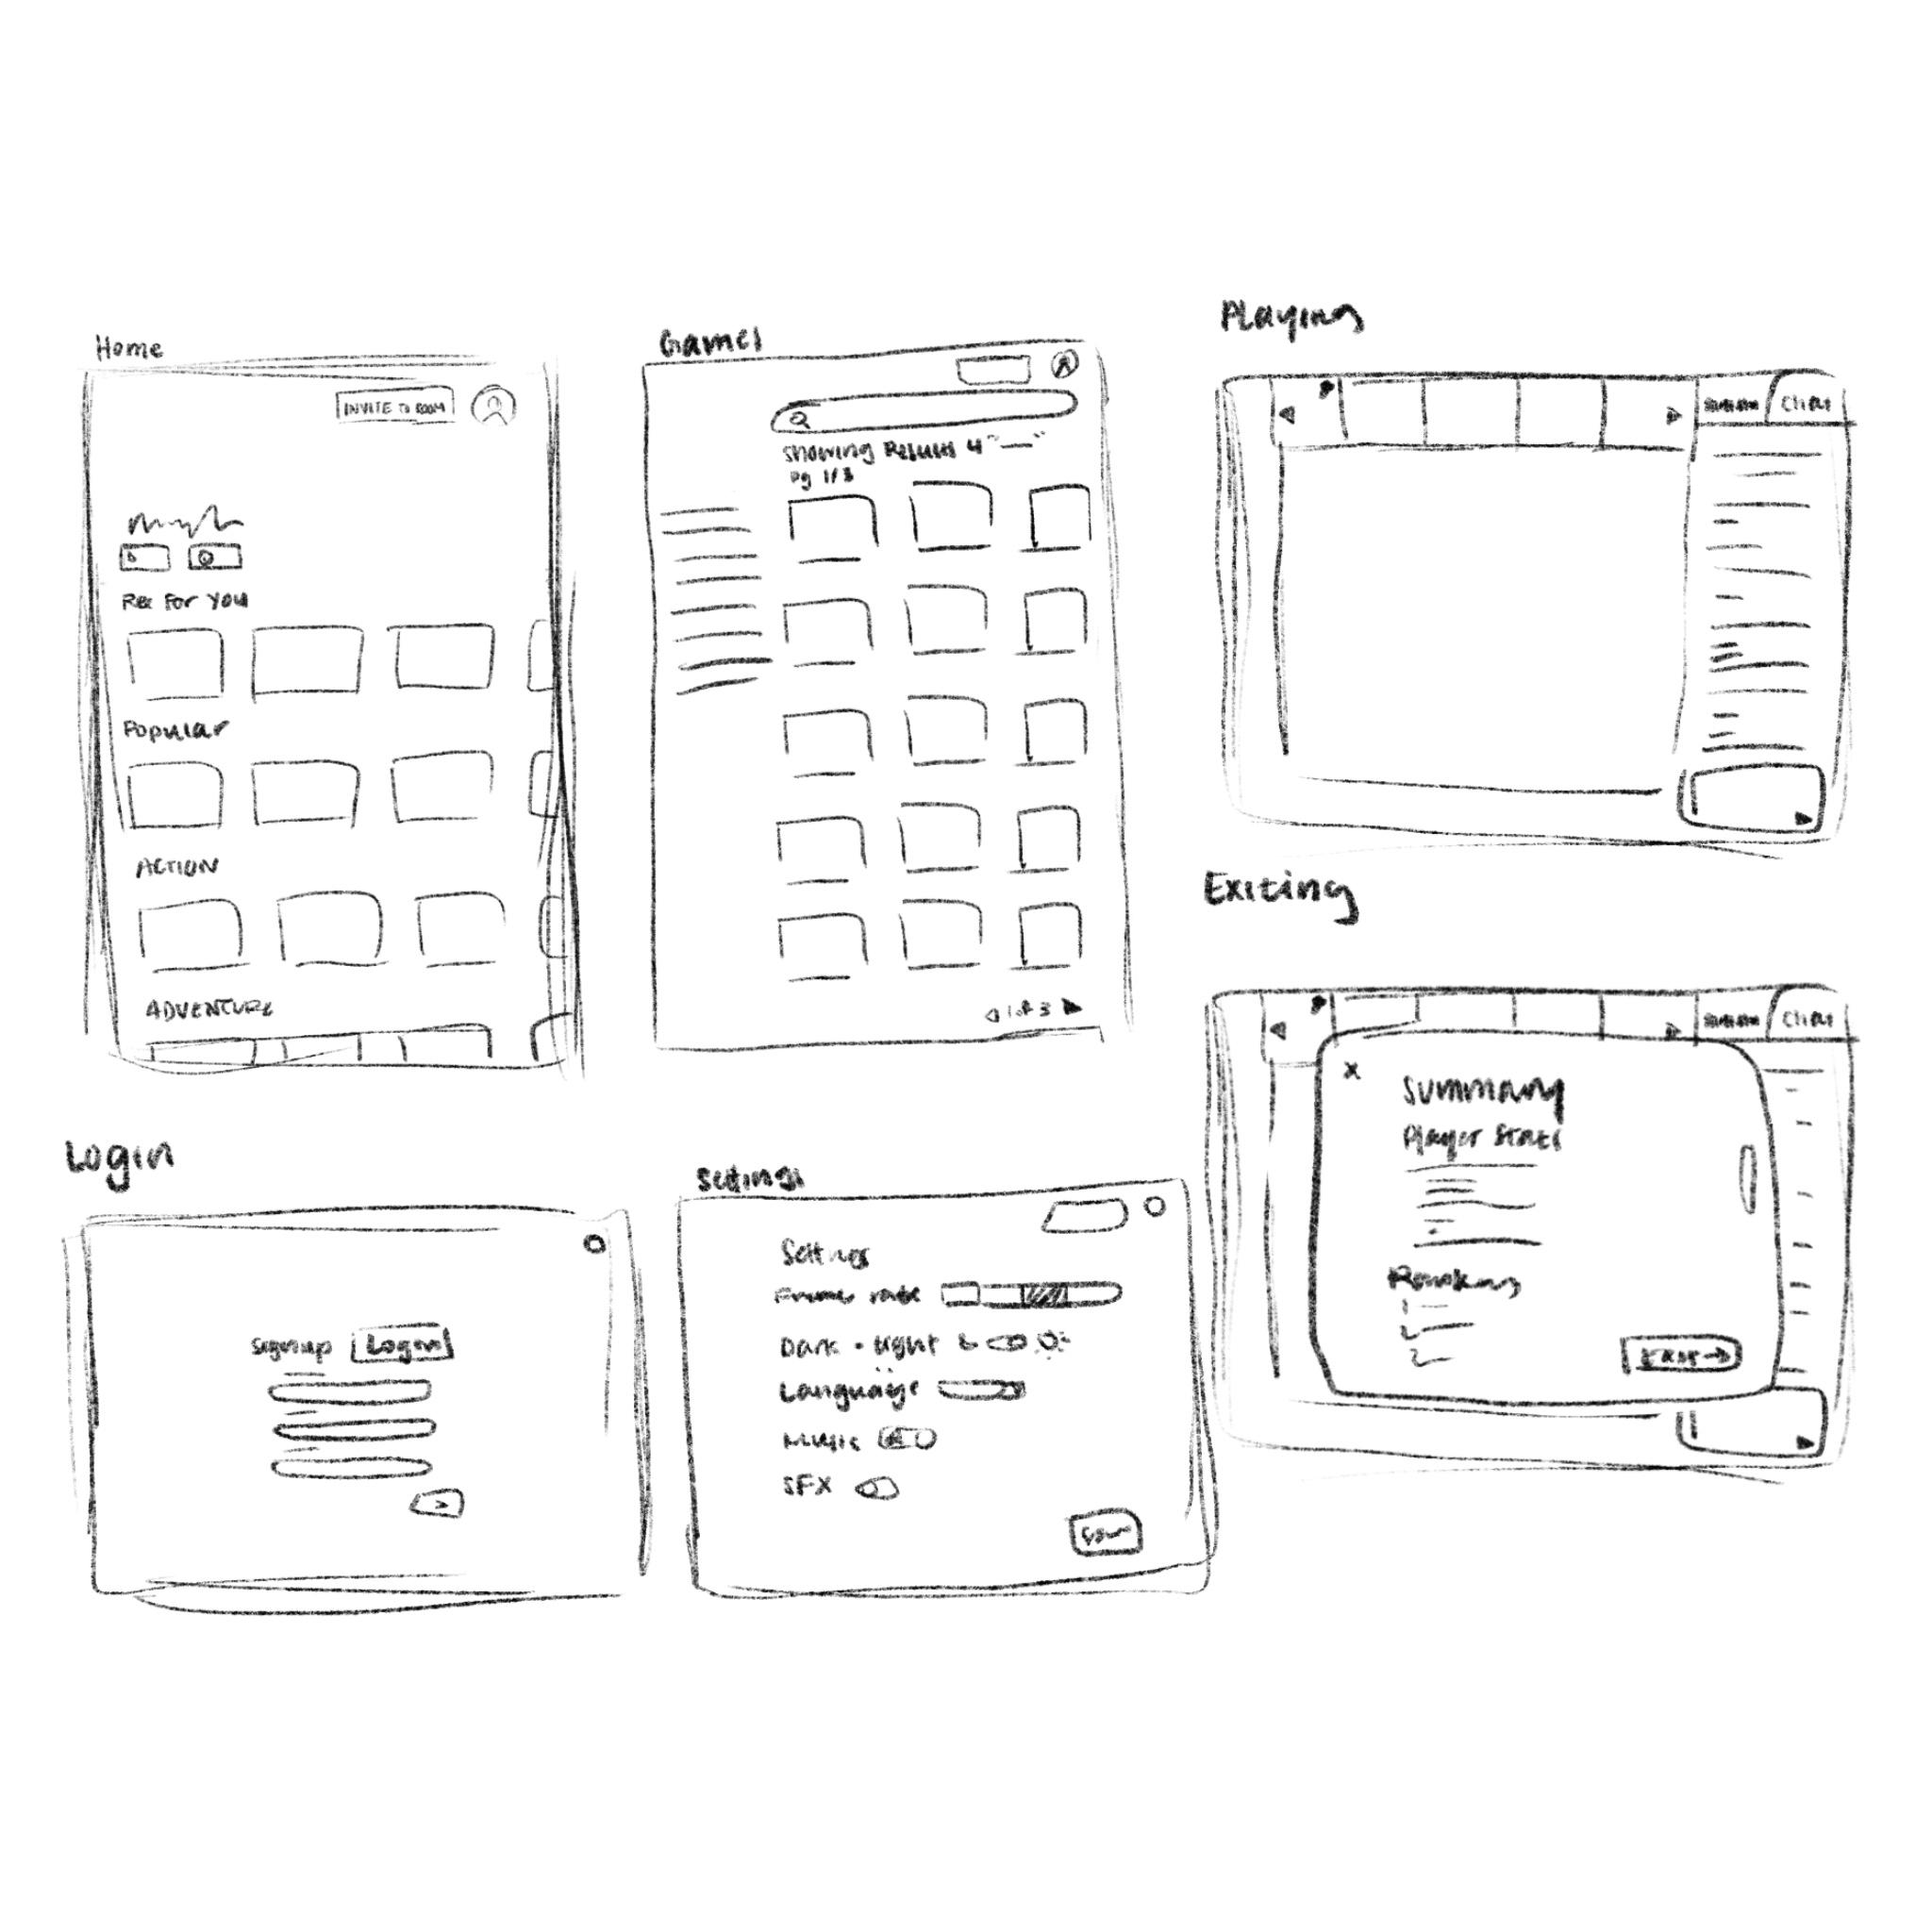 Home
INVITE TO ROOM
Rec For You
Popular
ACTION
ADVENTURE
Games
Showing Results 4 "—"
Pg 1/3
1 of 3
Playing
Chat
Exiting
Chat
x
Summary
Player Stats
Ranking
1
2
3
EXIT →
Login
Signup Login
>
Settings
Settings
Frame rate
Dark • Light
Language
Music
SFX
Save